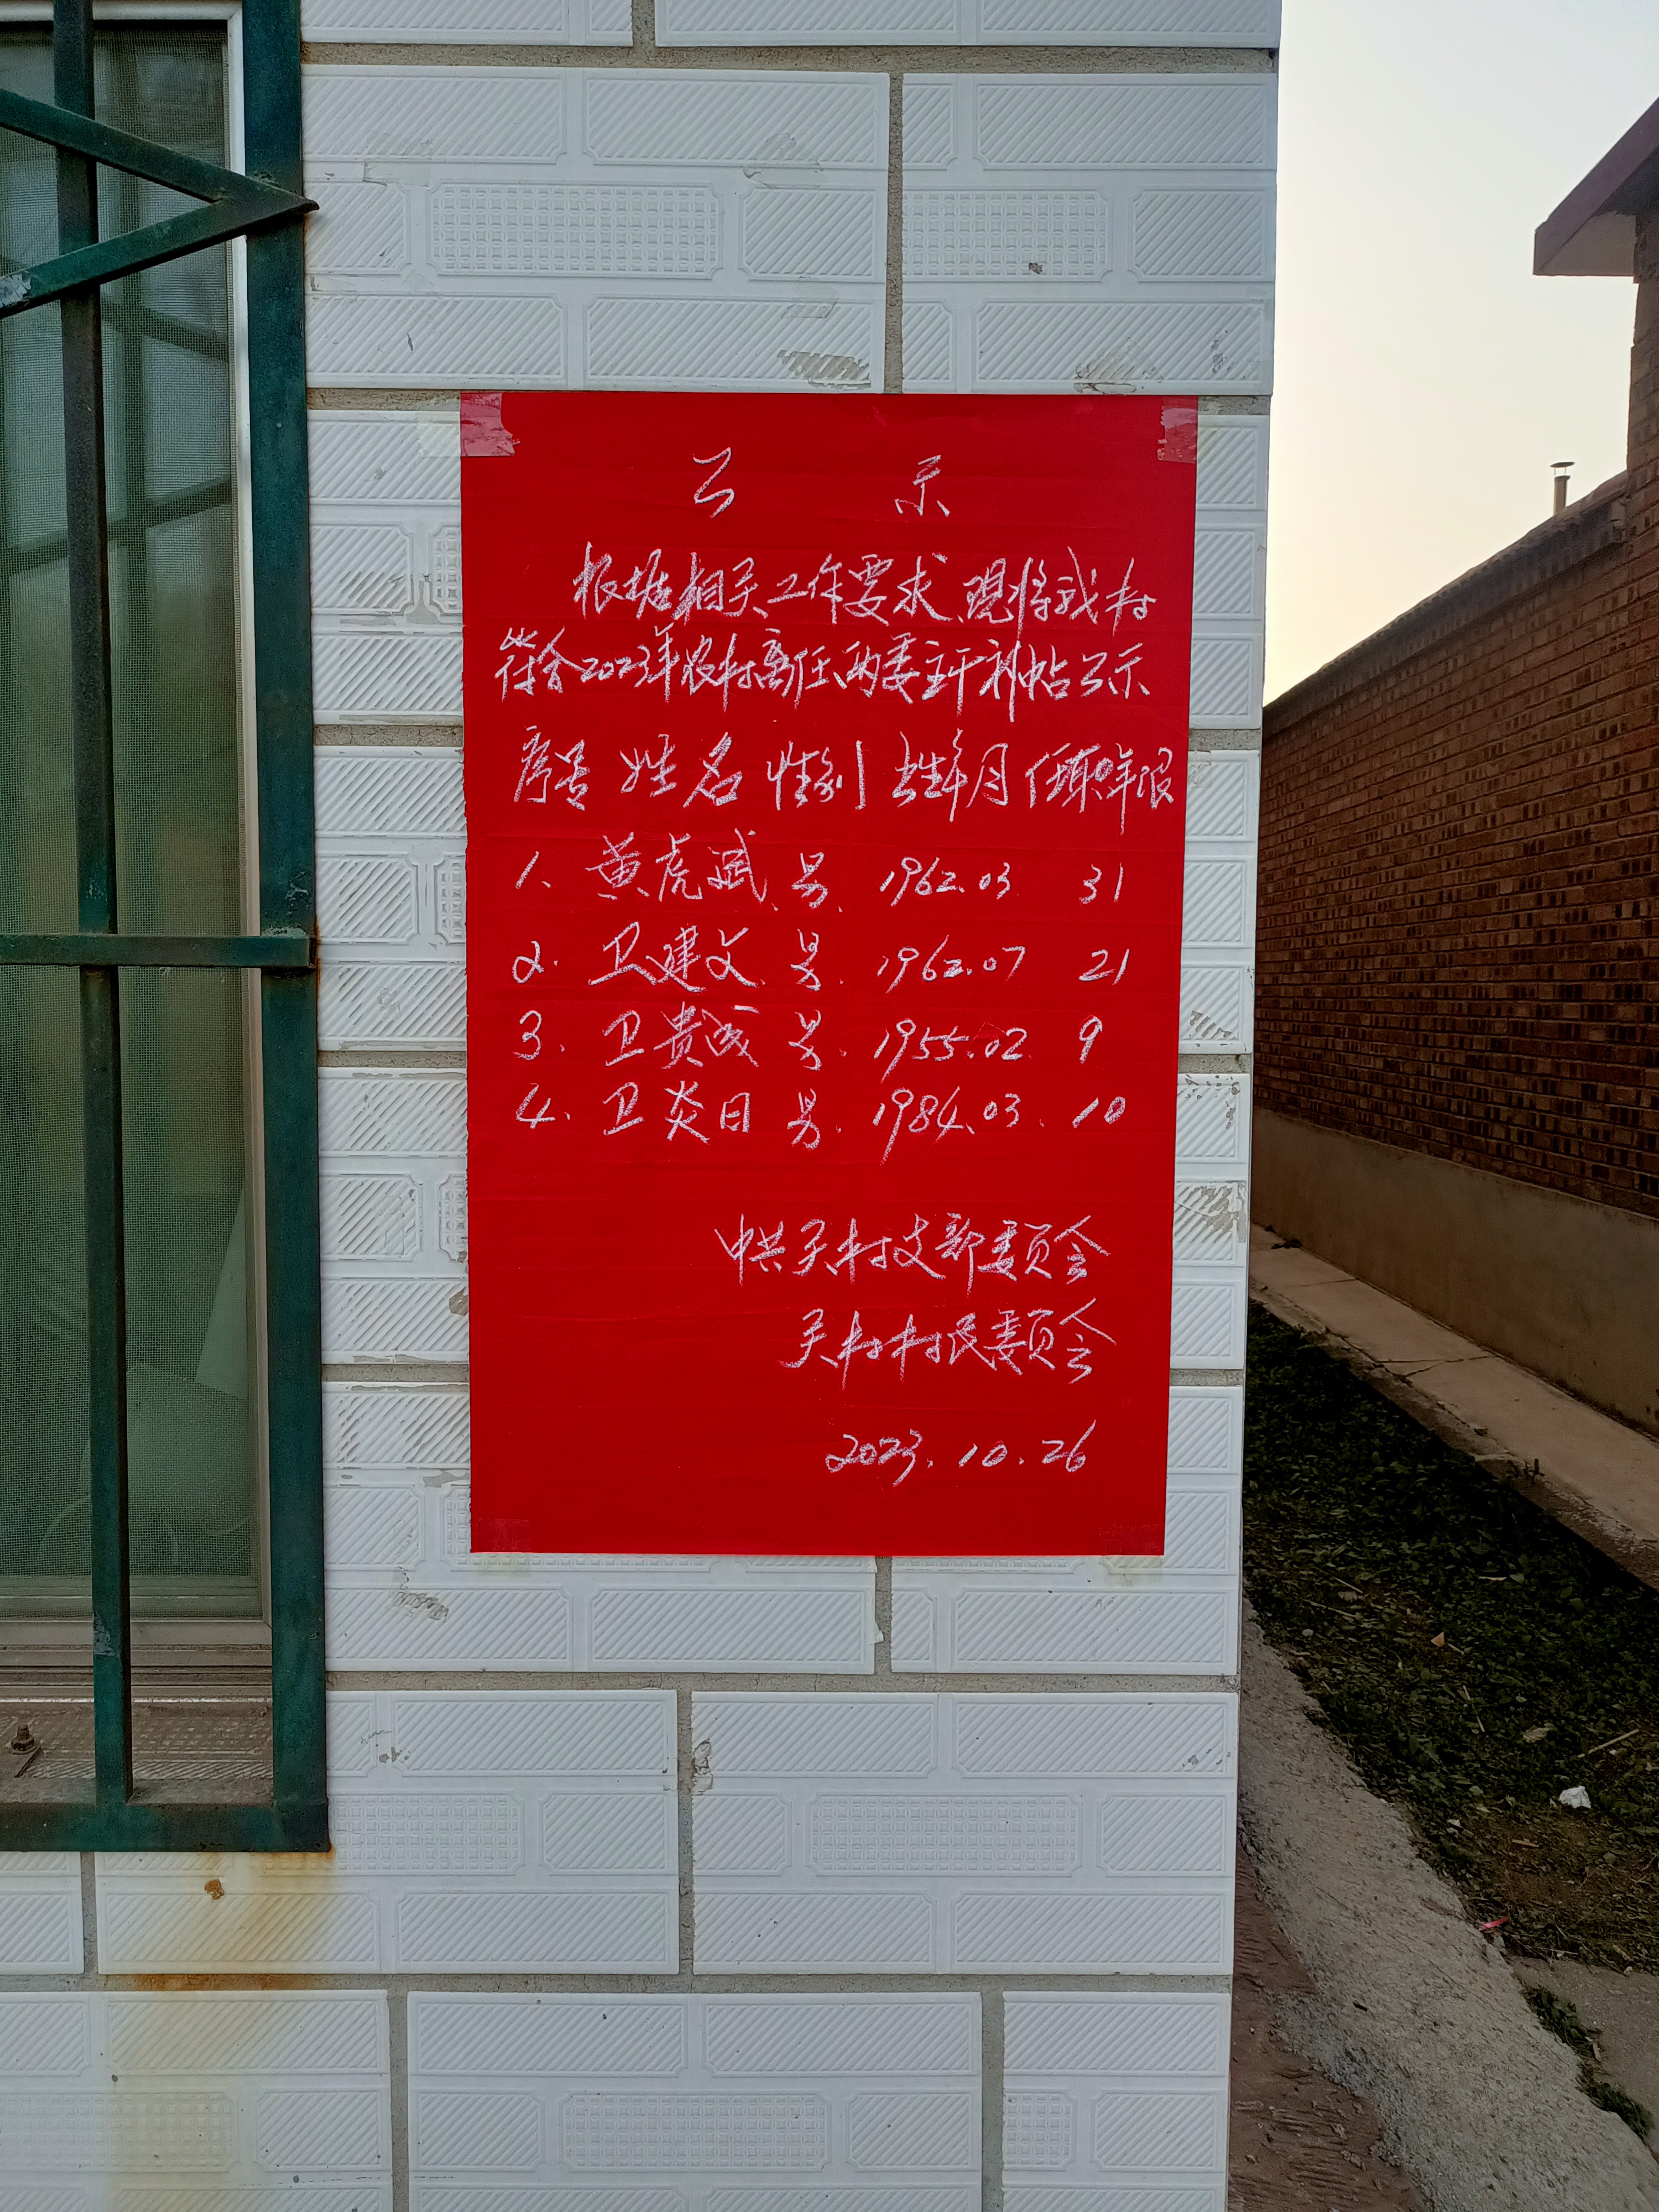 公 示
根据相关工作要求,现将我村
符合2023年农村离任两委主干补帖公示
序号 姓名 性别 出生年月 任职年限
1、 黄虎斌 男、 1962.03 31
2. 卫建文 男. 1962.07 21
3. 卫贵成 男. 1955.02 9
4. 卫炎日 男. 1984.03. 10
中共关村支部委员会
关村村民委员会
2023.10.26